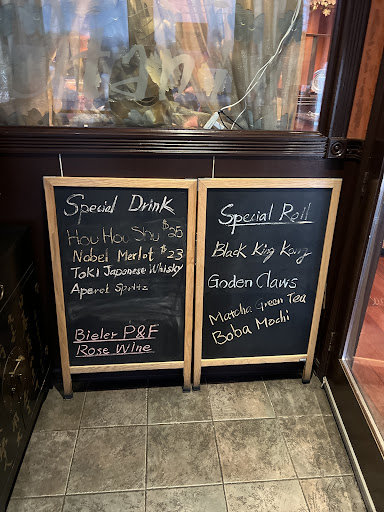 Special Drink
Hou Hou Shu $25
Nobel Merlot $23
Toki Japanese Whisky
Aperol Spritz
Bieler P&F
Rose Wine
Special Roll
Black King Kong
Goden Claws
Matcha Green Tea
Boba Mochi